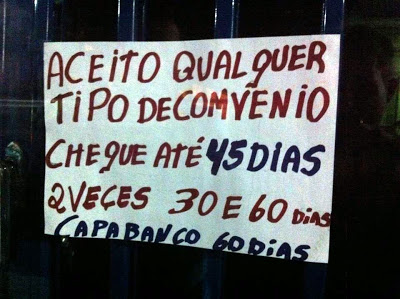 ACEITO QUALQUER
TIPO DE COMVÊNIO
CHEQUE ATÉ 45 DIAS
2 VEÇES 30 E 60 DIAS
CAPABANCO 60 DIAS